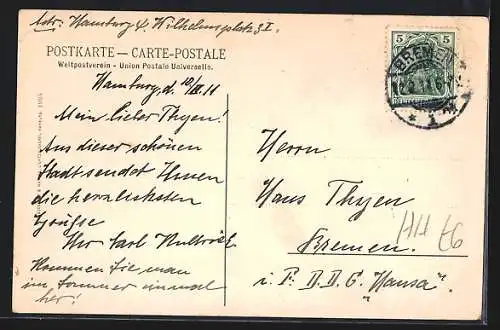 Adr: Hamburg 4. Wilhelmsplatz 3 I.
POSTKARTE — CARTE-POSTALE
Weltpostverein - Union Postale Universelle.
Hamburg, d. 10/II. 11
Mein lieber Thyen!
Aus dieser schönen
Stadt sendet Ihnen
die herzlichsten
Grüße
Ihr Carl
Kommen Sie man
im Sommer einmal
her!
5 5
BREMEN
1
Herrn
Hans Thyen
Bremen.
i. F: D. D. G. "Hansa".
HH